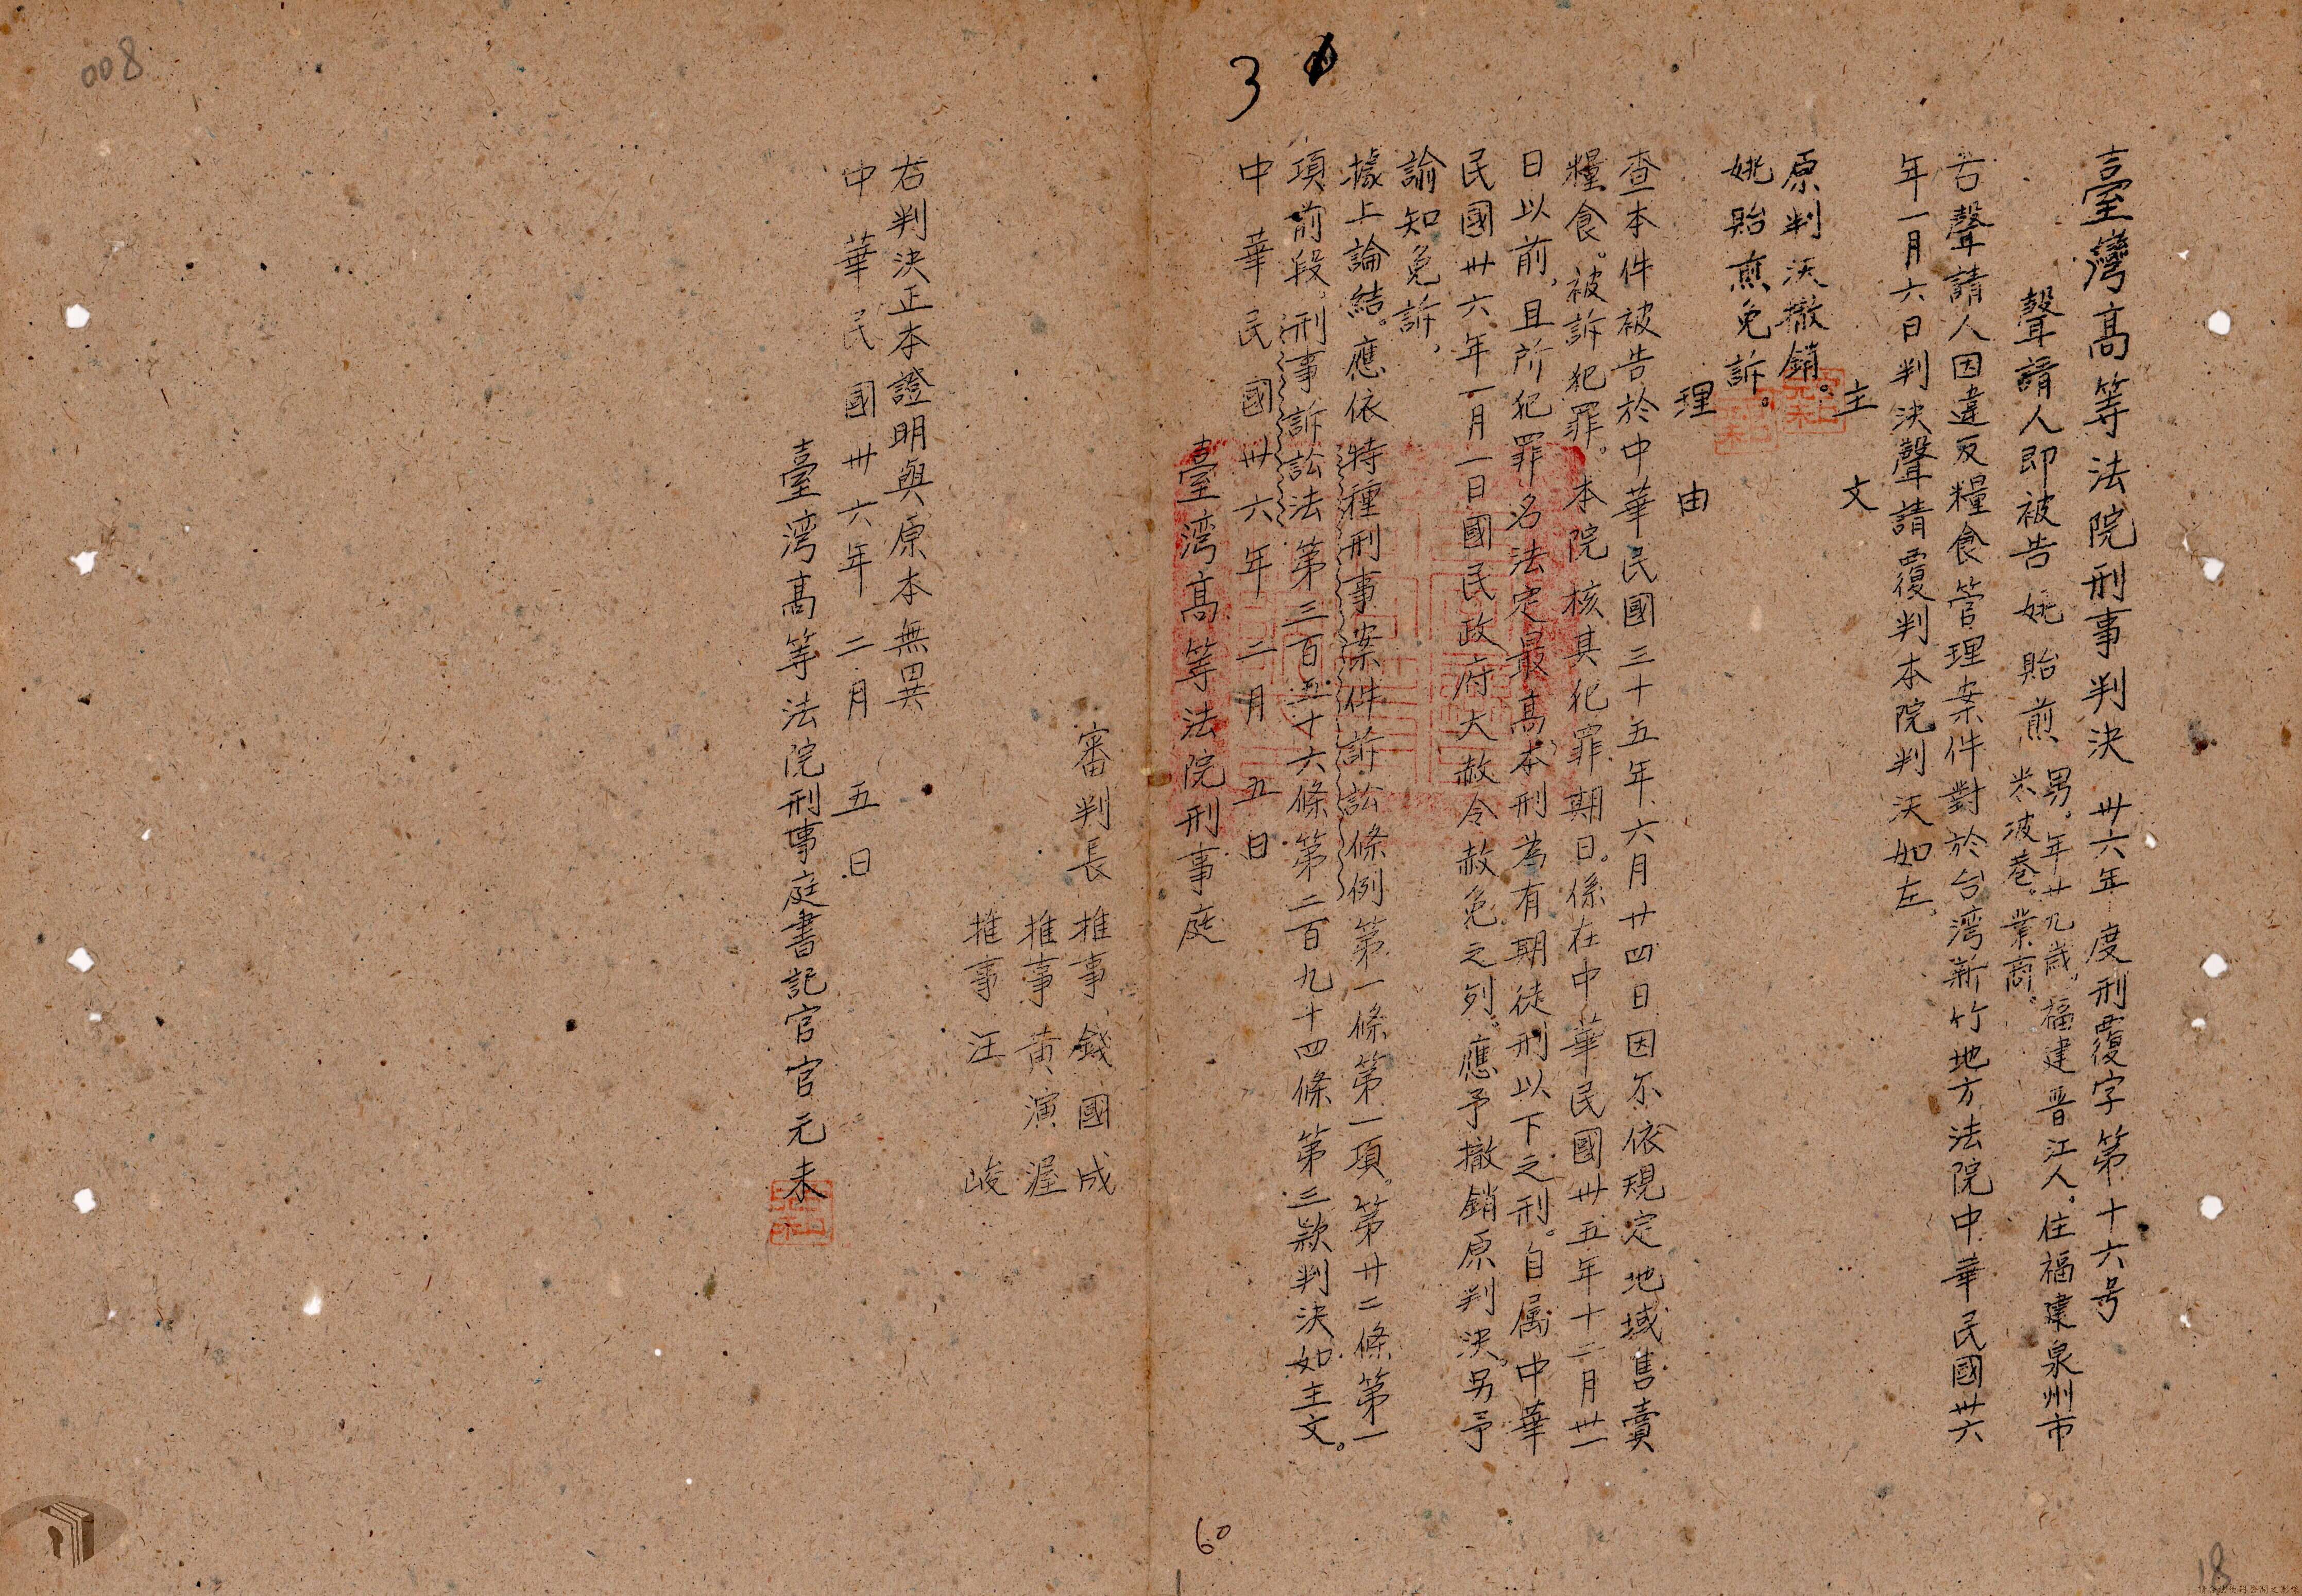 臺灣高等法院刑事判決 卅六年度刑覆字第十六号
聲請人即被告 姚貽煎 男。年廿九歲。福建晋江人。住福建泉州市
米波巷。業商。
右聲請人因違反糧食管理案件對於台湾新竹地方法院中華民國卅六
年一月六日判決聲請覆判本院判决如左。
主文
原判决撤銷。
姚貽煎免訴。
理由
查本件被告於中華民國三十五年六月廿四日因不依規定地域售賣
糧食。被訴犯罪。本院核其犯罪期日。係在中華民國卅五年十二月卅一
日以前,且所犯罪名法定最高本刑為有期徒刑以下之刑。自属中華
民國卅六年一月一日國民政府大赦令赦免之列。應予撤銷原判决。另予
諭知免訴,
據上論結。應依特種刑事案件訴訟條例第一條第一項。第廿二條第一
項前段。刑事訴訟法第三百五十六條第二百九十四條第三款判決如主文。
中華民國卅六年二月五日
臺湾高等法院刑事庭
審判長推事錢國成
推事黄演渥
推事汪峻
右判決正本證明與原本無異
中華民國卅六年二月五日
臺湾高等法院刑事庭書記官官元未
3
008
60
18